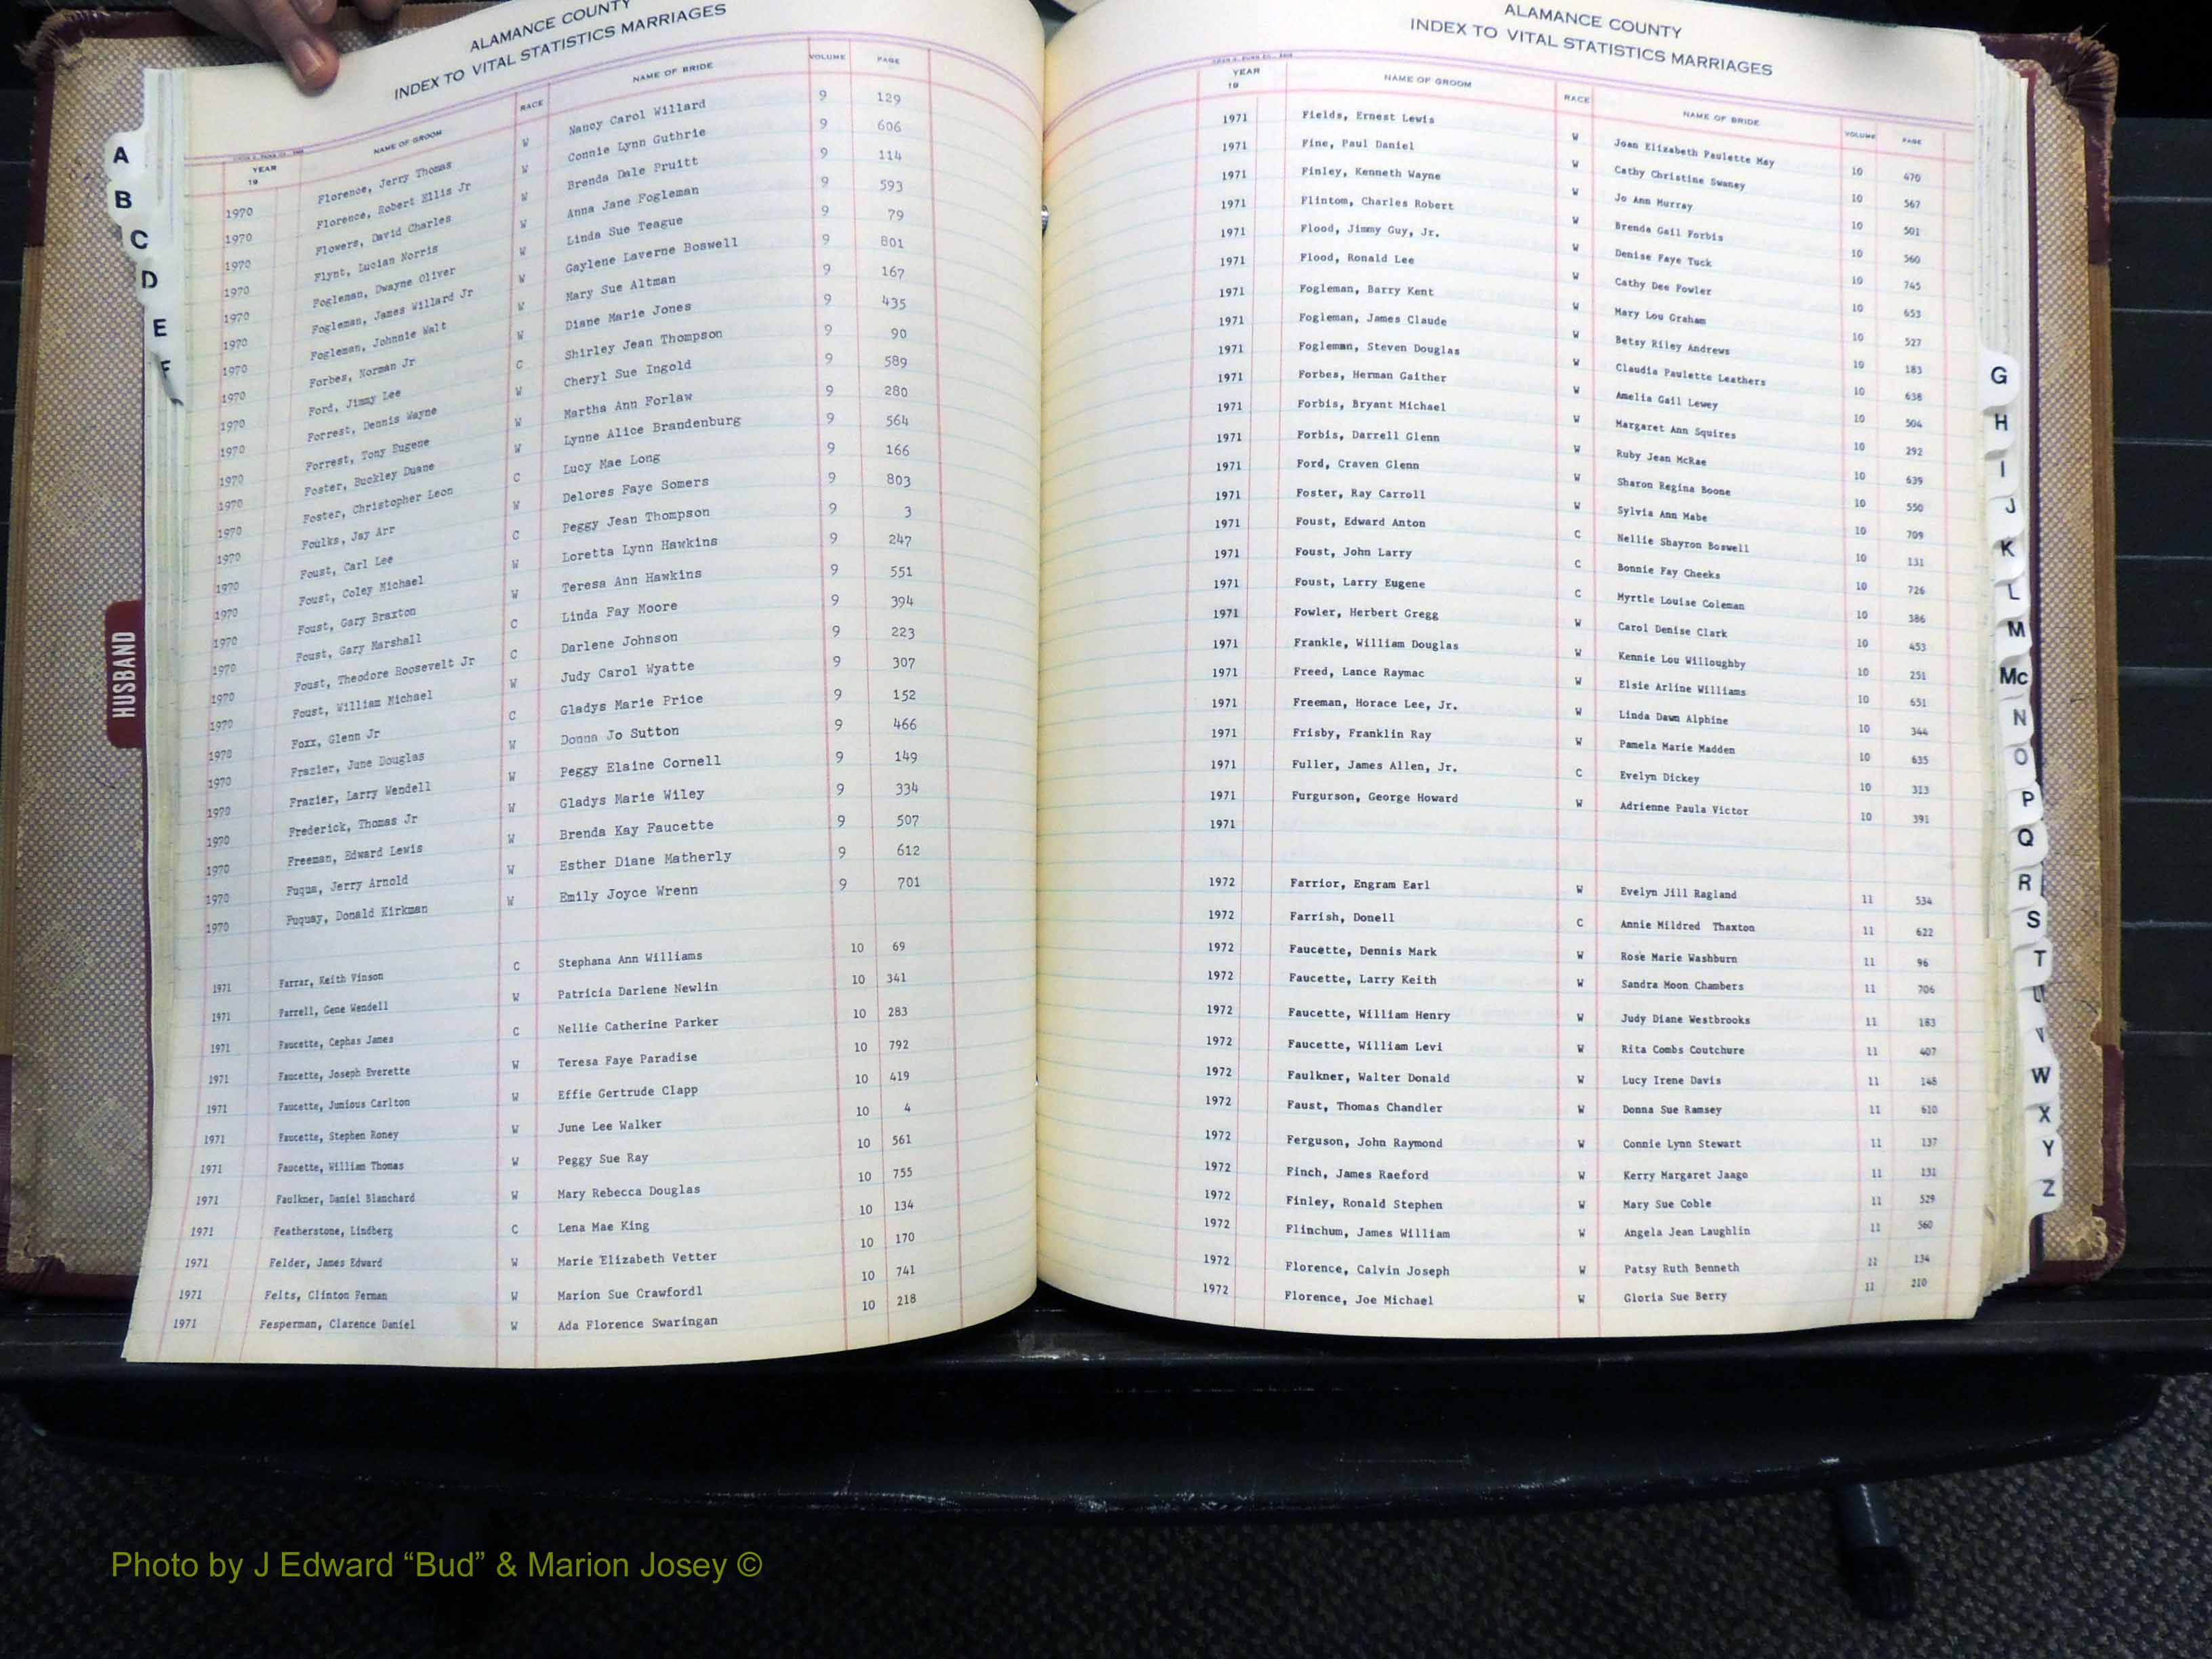 ALAMANCE COUNTY
INDEX TO VITAL STATISTICS MARRIAGES
YEAR 19 NAME OF GROOM RACE NAME OF BRIDE VOLUME PAGE
1970 Florence, Jerry Thomas W Nancy Carol Willard 9 129
1970 Florence, Robert Ellis Jr W Connie Lynn Guthrie 9 606
1970 Flowers, David Charles W Brenda Dale Pruitt 9 114
1970 Flynt, Lucian Norris W Anna Jane Fogleman 9 593
1970 Fogleman, Dwayne Oliver W Linda Sue Teague 9 79
1970 Fogleman, James Willard Jr W Gaylene Laverne Boswell 9 801
1970 Fogleman, Johnnie Walt W Mary Sue Altman 9 167
1970 Forbes, Norman Jr W Diane Marie Jones 9 435
1970 Ford, Jimmy Lee C Shirley Jean Thompson 9 90
1970 Forrest, Dennis Wayne W Cheryl Sue Ingold 9 589
1970 Forrest, Tony Eugene W Martha Ann Forlaw 9 280
1970 Foster, Buckley Duane W Lynne Alice Brandenburg 9 564
1970 Foster, Christopher Leon C Lucy Mae Long 9 166
1970 Foulks, Jay Arr W Delores Faye Somers 9 803
1970 Foust, Carl Lee C Peggy Jean Thompson 9 3
1970 Foust, Coley Michael W Loretta Lynn Hawkins 9 247
1970 Foust, Gary Braxton W Teresa Ann Hawkins 9 551
1970 Foust, Gary Marshall C Linda Fay Moore 9 394
1970 Foust, Theodore Roosevelt Jr C Darlene Johnson 9 223
1970 Foust, William Michael W Judy Carol Wyatte 9 307
1970 Foxx, Glenn Jr C Gladys Marie Price 9 152
1970 Frazier, June Douglas W Donna Jo Sutton 9 466
1970 Frazier, Larry Wendell W Peggy Elaine Cornell 9 149
1970 Frederick, Thomas Jr W Gladys Marie Wiley 9 334
1970 Freeman, Edward Lewis W Brenda Kay Faucette 9 507
1970 Fuqua, Jerry Arnold W Esther Diane Matherly 9 612
1970 Fuquay, Donald Kirkman W Emily Joyce Wrenn 9 701
1971 Farrar, Keith Vinson C Stephana Ann Williams 10 69
1971 Farrell, Gene Wendell W Patricia Darlene Newlin 10 341
1971 Faucette, Cephas James C Nellie Catherine Parker 10 283
1971 Faucette, Joseph Everette W Teresa Faye Paradise 10 792
1971 Faucette, Junious Carlton W Effie Gertrude Clapp 10 419
1971 Faucette, Stephen Roney W June Lee Walker 10 4
1971 Faucette, William Thomas W Peggy Sue Ray 10 561
1971 Faulkner, Daniel Blanchard W Mary Rebecca Douglas 10 755
1971 Featherstone, Lindberg C Lena Mae King 10 134
1971 Felder, James Edward W Marie Elizabeth Vetter 10 170
1971 Felts, Clinton Ferman W Marion Sue Crawfordl 10 741
1971 Fesperman, Clarence Daniel W Ada Florence Swaringan 10 218
A
B
C
D
E
F
HUSBAND
ALAMANCE COUNTY
INDEX TO VITAL STATISTICS MARRIAGES
YEAR 19 NAME OF GROOM RACE NAME OF BRIDE VOLUME PAGE
1971 Fields, Ernest Lewis W Joan Elizabeth Paulette May 10 470
1971 Fine, Paul Daniel W Cathy Christine Swaney 10 567
1971 Finley, Kenneth Wayne W Jo Ann Murray 10 501
1971 Flintom, Charles Robert W Brenda Gail Forbis 10 560
1971 Flood, Jimmy Guy, Jr. W Denise Faye Tuck 10 745
1971 Flood, Ronald Lee W Cathy Dee Fowler 10 653
1971 Fogleman, Barry Kent W Mary Lou Graham 10 527
1971 Fogleman, James Claude W Betsy Riley Andrews 10 183
1971 Fogleman, Steven Douglas W Claudia Paulette Leathers 10 638
1971 Forbes, Herman Gaither W Amelia Gail Lewey 10 504
1971 Forbis, Bryant Michael W Margaret Ann Squires 10 292
1971 Forbis, Darrell Glenn W Ruby Jean McRae 10 639
1971 Ford, Craven Glenn W Sharon Regina Boone 10 550
1971 Foster, Ray Carroll W Sylvia Ann Mabe 10 709
1971 Foust, Edward Anton C Nellie Shayron Boswell 10 131
1971 Foust, John Larry C Bonnie Fay Cheeks 10 726
1971 Foust, Larry Eugene C Myrtle Louise Coleman 10 386
1971 Fowler, Herbert Gregg W Carol Denise Clark 10 453
1971 Frankle, William Douglas W Kennie Lou Willoughby 10 251
1971 Freed, Lance Raymac W Elsie Arline Williams 10 651
1971 Freeman, Horace Lee, Jr. W Linda Dawn Alphine 10 344
1971 Frisby, Franklin Ray W Pamela Marie Madden 10 635
1971 Fuller, James Allen, Jr. C Evelyn Dickey 10 313
1971 Furgurson, George Howard W Adrienne Paula Victor 10 391
1971
1972 Farrior, Engram Earl W Evelyn Jill Ragland 11 534
1972 Farrish, Donell C Annie Mildred Thaxton 11 622
1972 Faucette, Dennis Mark W Rose Marie Washburn 11 96
1972 Faucette, Larry Keith W Sandra Moon Chambers 11 706
1972 Faucette, William Henry W Judy Diane Westbrooks 11 183
1972 Faucette, William Levi W Rita Combs Coutchure 11 407
1972 Faulkner, Walter Donald W Lucy Irene Davis 11 148
1972 Faust, Thomas Chandler W Donna Sue Ramsey 11 610
1972 Ferguson, John Raymond W Connie Lynn Stewart 11 137
1972 Finch, James Raeford W Kerry Margaret Jaago 11 131
1972 Finley, Ronald Stephen W Mary Sue Coble 11 529
1972 Flinchum, James William W Angela Jean Laughlin 11 560
1972 Florence, Calvin Joseph W Patsy Ruth Benneth 11 134
1972 Florence, Joe Michael W Gloria Sue Berry 11 210
G
H
I
J
K
L
M
Mc
N
O
P
Q
R
S
T
U
V
W
X
Y
Z
Photo by J Edward “Bud” & Marion Josey ©